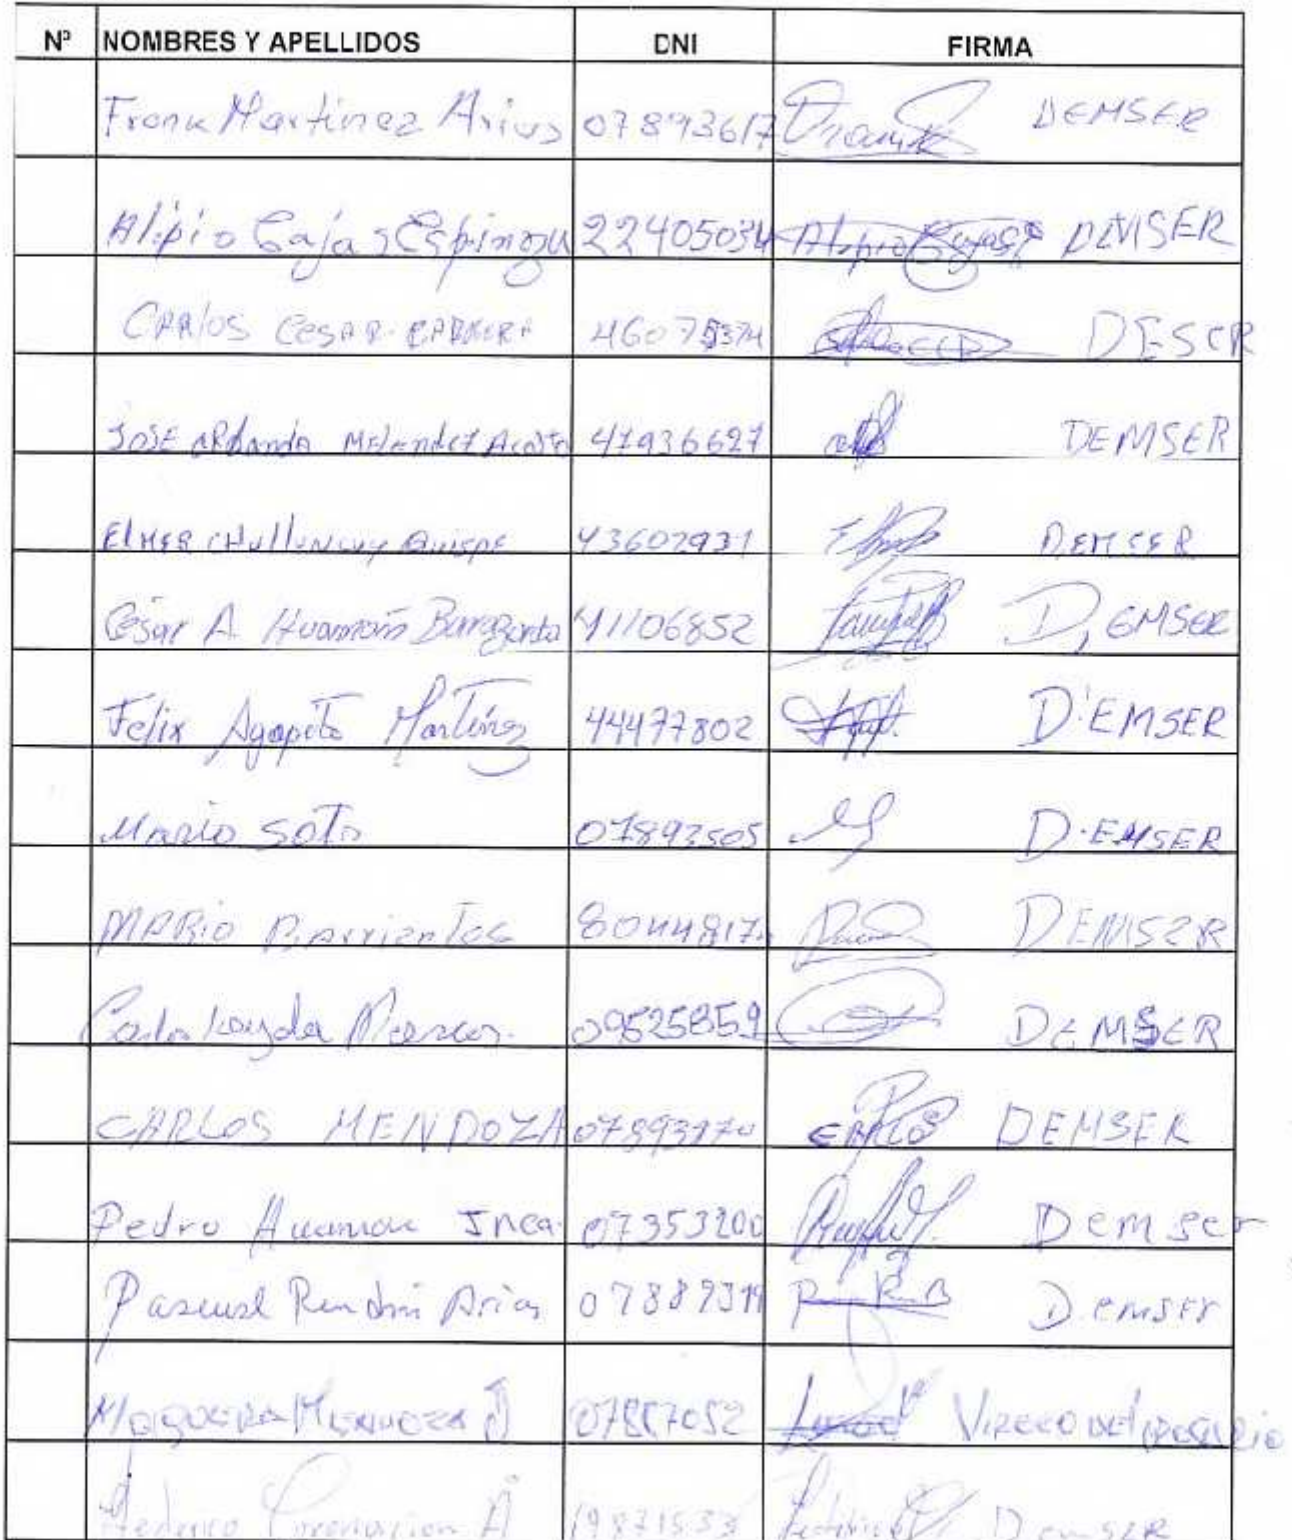 Nº NOMBRES Y APELLIDOS DNI FIRMA
Frank Martinez Arias 07893617 DEMSER
Alipio Cajas Espinoza 22405034 Alipio Cajas DEMSER
CARlOS CESAR CABRERA 46075374 DESER
JOSE Melendez Acosta 41936627 DEMSER
ElMER CHulluncuy Quispe 43602931 DEMSER
César A. Huamaní 41106852 D, EMSER
Felix Agapito Martinez 44477802 D'EMSER
Mario Soto 07892505 D.EMSER
MARIO Barrientos 8044817 DEMSER
Carlos Loayda 09525859 DEMSER
CARLOS MENDOZA 07893170 CARLOS DEMSER
Pedro Huaman Inca. 07353200 Demser
Pascual Rendon Arias 078893 D.emser
MENDOZA J 07867052 DEL ROSARIO
Federico Coronacion A 19871533 Demser